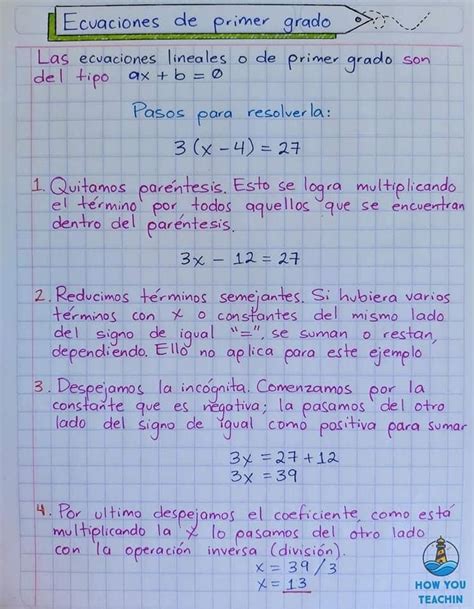 Ecuaciones de primer grado
Las ecuaciones lineales o de primer grado son
del tipo ax + b = 0
Pasos para resolverla:
3(x - 4) = 27
1. Quitamos paréntesis. Esto se logra multiplicando
el término por todos aquellos que se encuentran
dentro del paréntesis.
3x - 12 = 27
2. Reducimos términos semejantes. Si hubiera varios
términos con x o constantes del mismo lado
del signo de igual "=", se suman o restan,
dependiendo. Ello no aplica para este ejemplo
3. Despejamos la incógnita. Comenzamos por la
constante que es negativa; la pasamos del otro
lado del signo de igual como positiva para sumar
3x = 27 + 12
3x = 39
4. Por ultimo despejamos el coeficiente, como está
multiplicando la x lo pasamos del otro lado
con la operación inversa (división).
x = 39 / 3
x = 13
HOW YOU
TEACHIN